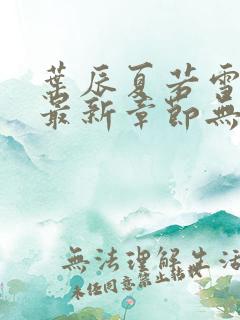 葉辰夏若雪
最新章節無
無法理解生活
未經同意禁止轉載